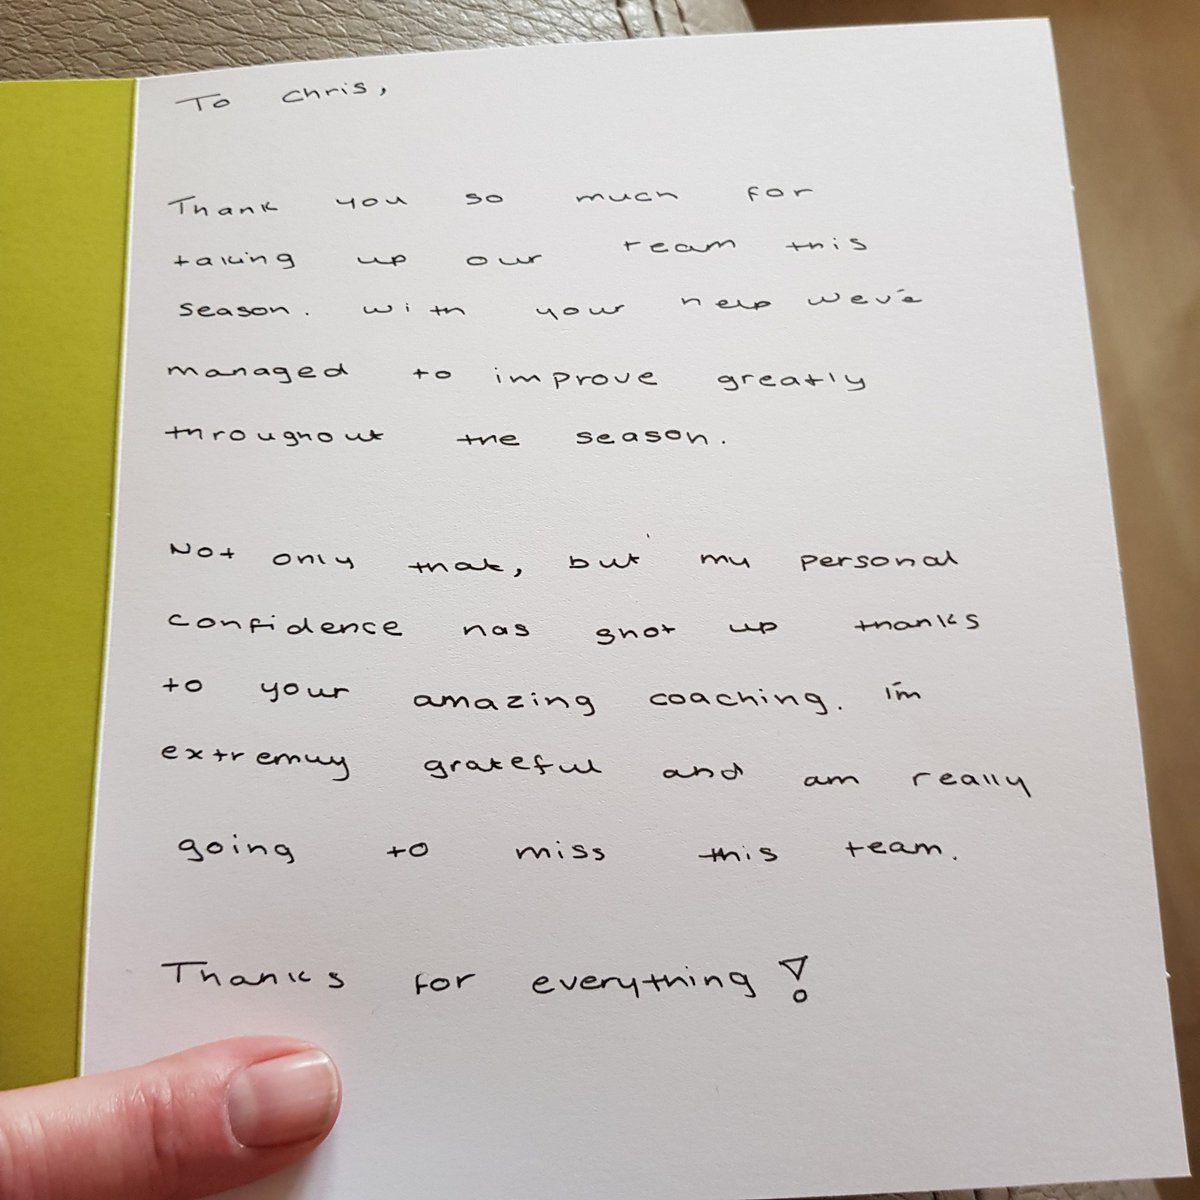 To Chris,
Thank you so much for
taking up our team this
season. with your help we've
managed to improve greatly
throughout the season.
Not only that, but my personal
confidence has shot up thanks
to your amazing coaching. I'm
extremly grateful and am really
going to miss this team.
Thanks for everything!